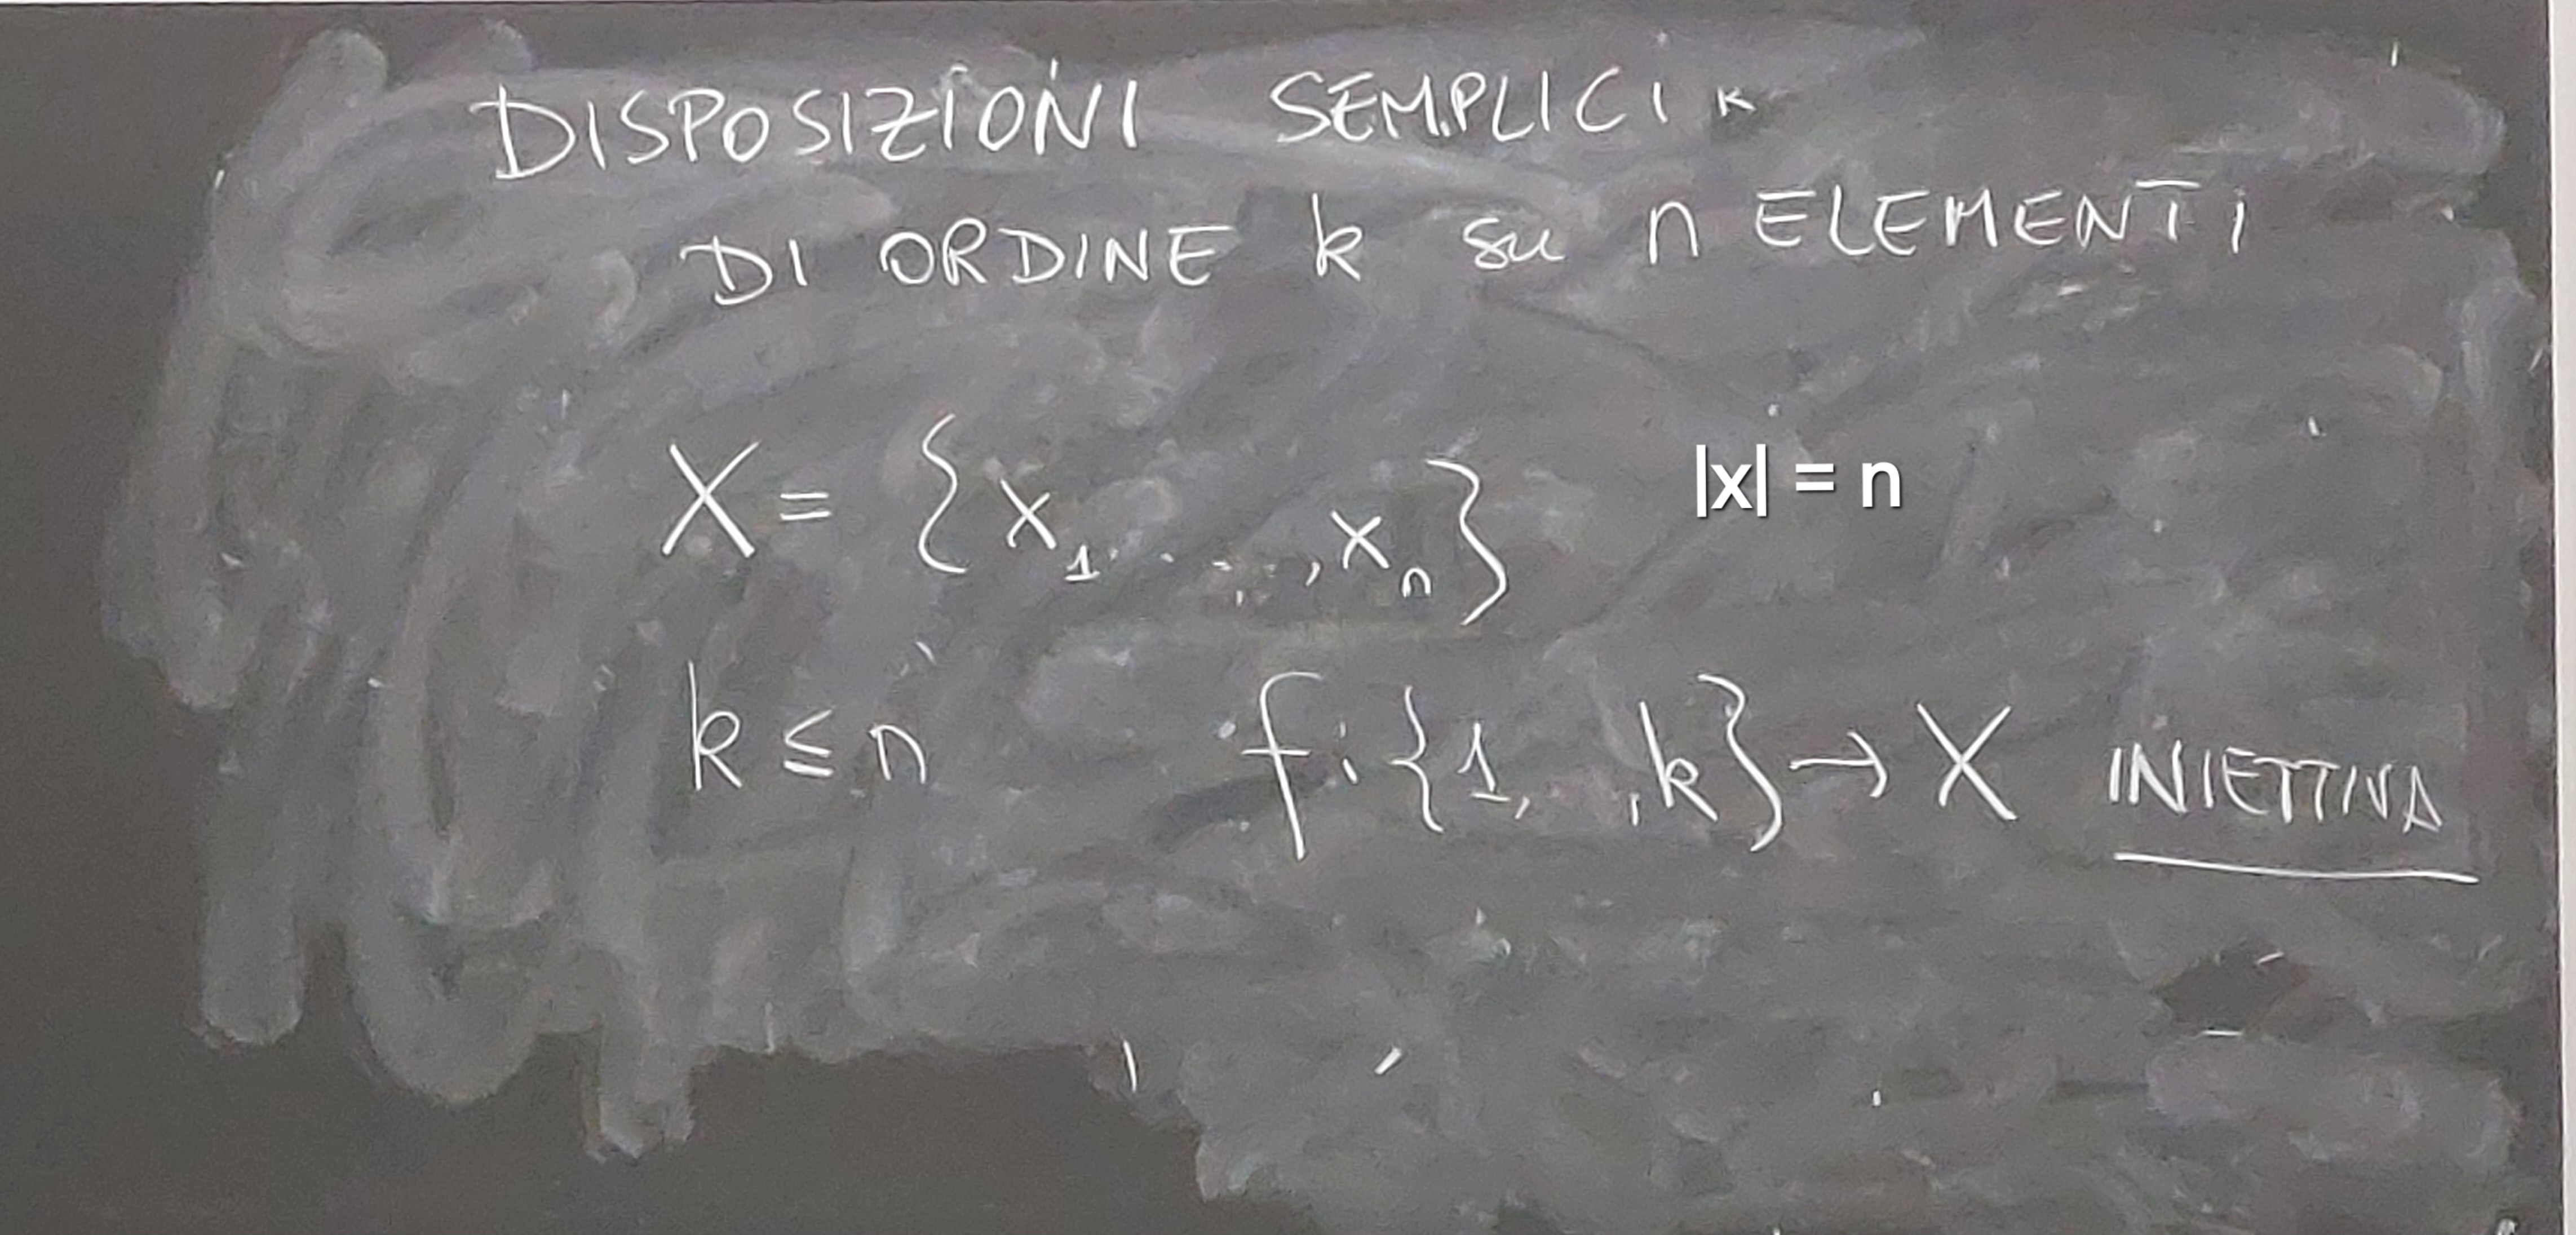 DISPOSIZIONI SEMPLICI
DI ORDINE k su n ELEMENTI
X = {x₁...,xₙ} |x| = n
k ≤ n f:{1, ,k}→X INIETTIVA